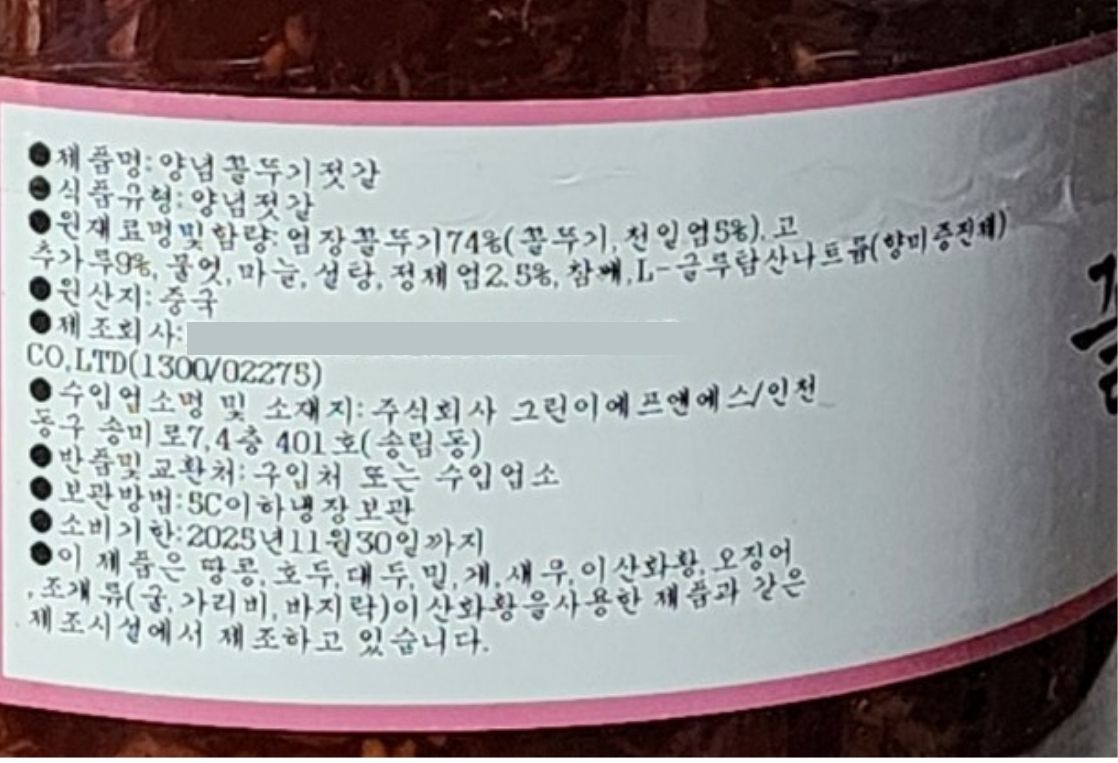 ●제품명:양념꼴뚜기젓갈
●식품유형:양념젓갈
●원재료명및함량:염장꼴뚜기74%(꼴뚜기,천일염5%),고
추가루9%,물엿,마늘,설탕,정제염2.5%,참깨,L-글루탐산나트륨(향미증진제)
●원산지:중국
●제조회사:
CO,LTD(1300/02275)
●수입업소명 및 소재지:주식회사 그린이에프앤에스/인천
동구 송미로7,4층 401호(송림동)
●반품및교환처:구입처 또는 수입업소
●보관방법:5C이하냉장보관
●소비기한:2025년11월30일까지
●이 제품은 땅콩,호두,대두,밀,게,새우,이산화황,오징어
,조개류(굴,가리비,바지락)이산화황을사용한 제품과 같은
제조시설에서 제조하고 있습니다.